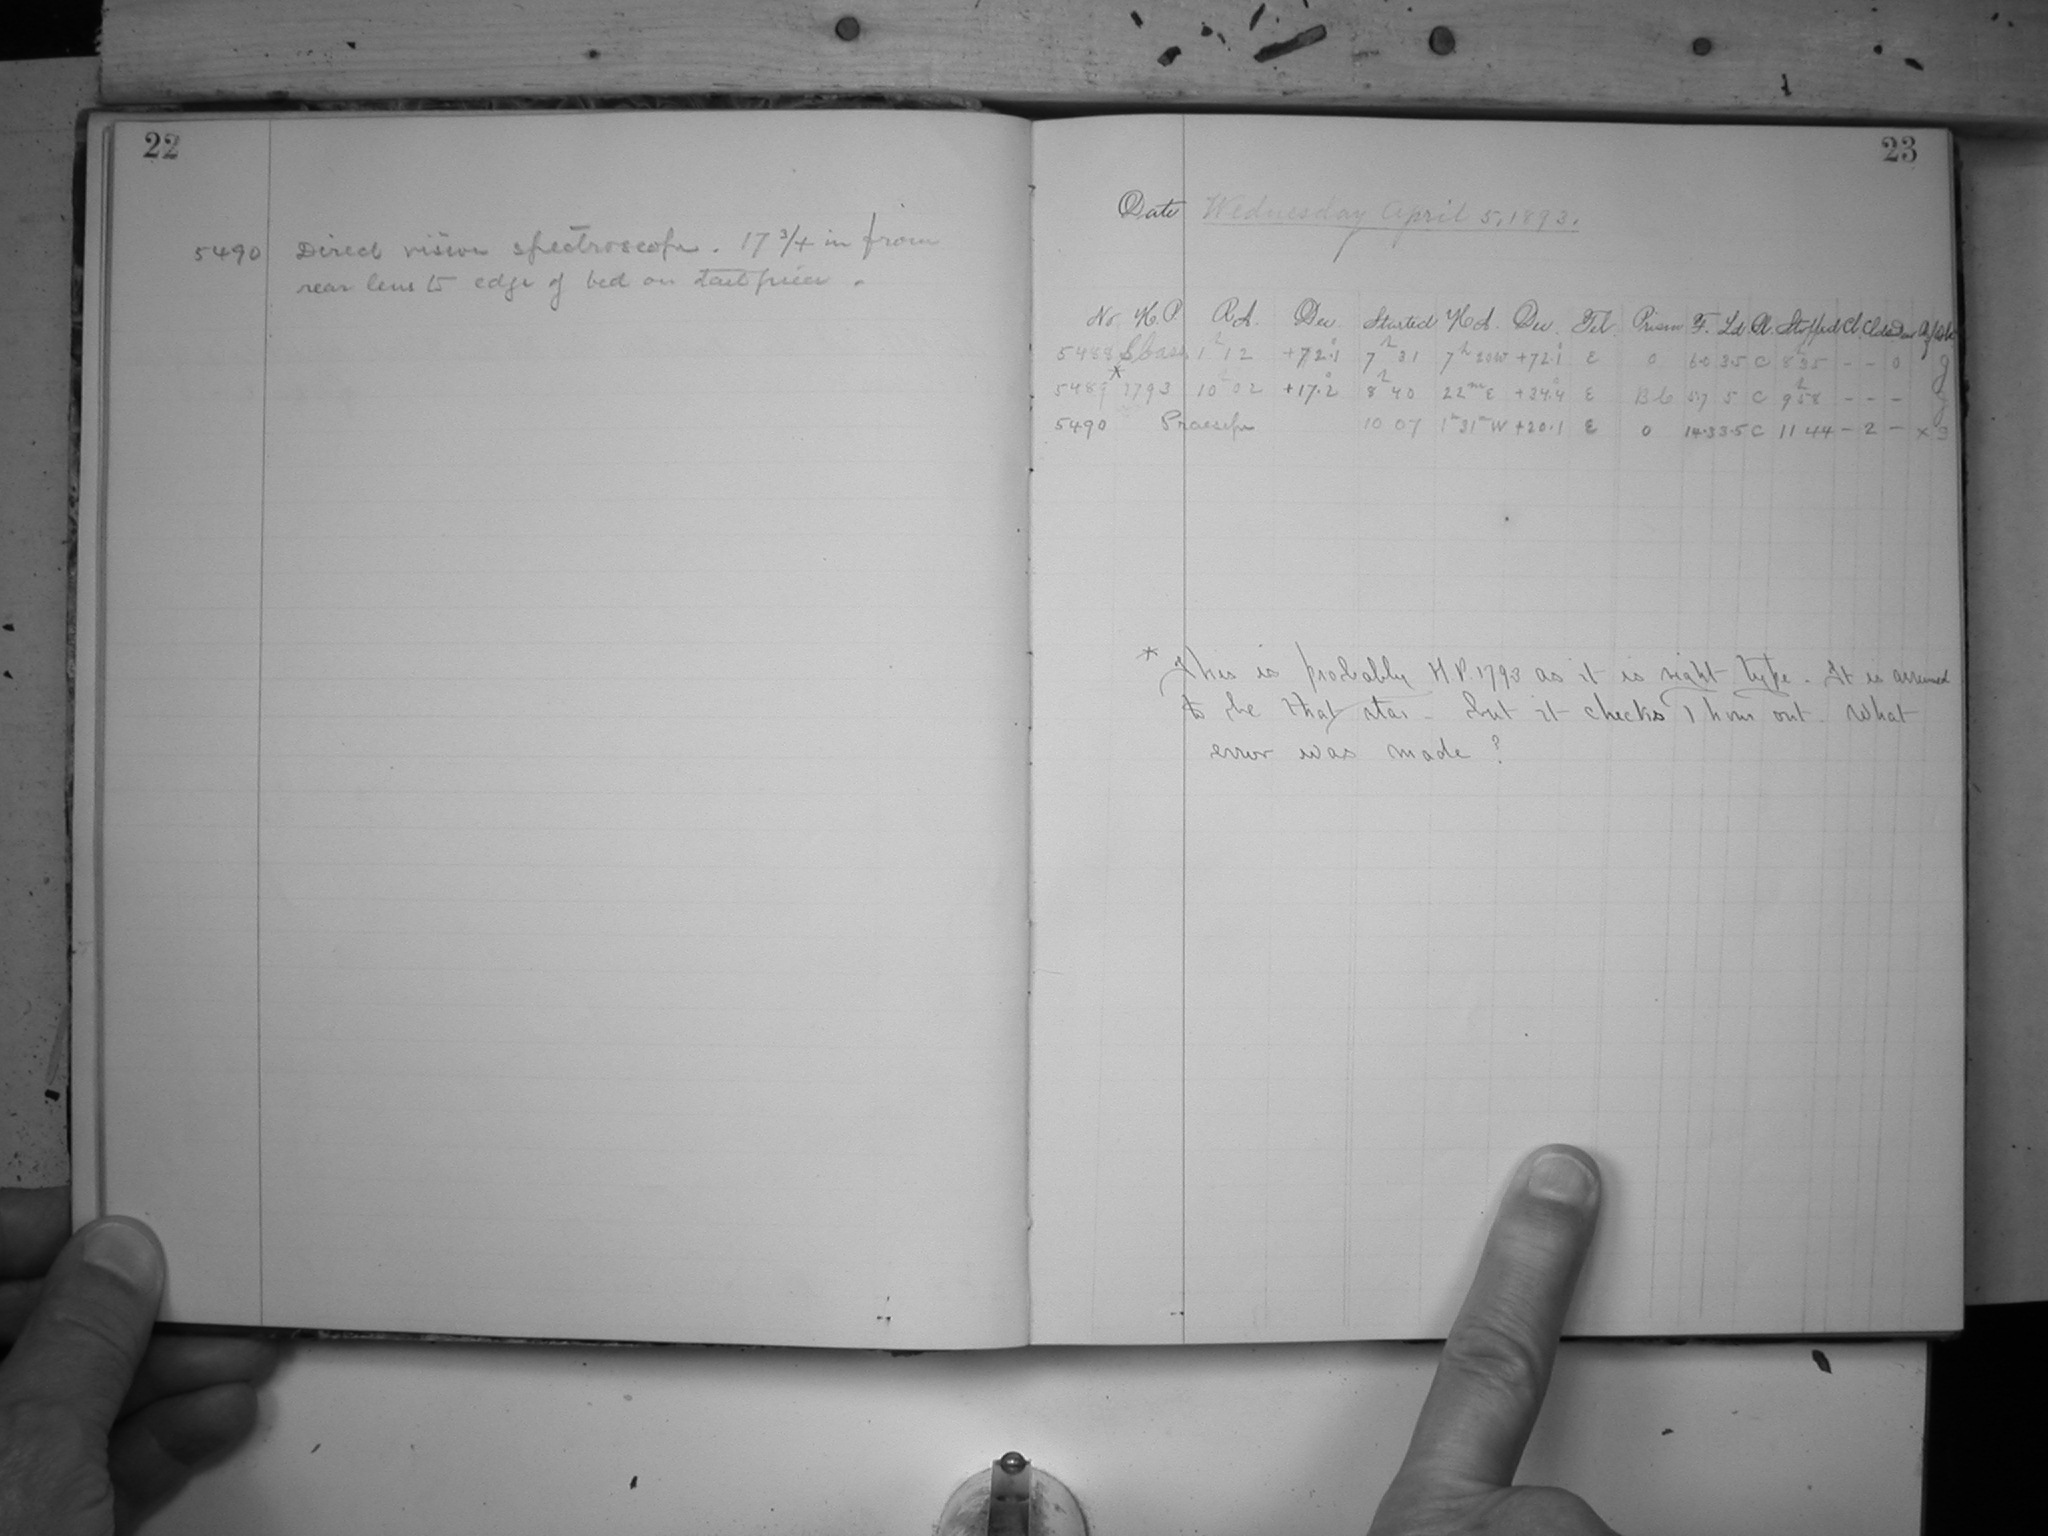 22
5490 Direct vision spectroscope. 17 3/4 in from
rear lens to edge of bed on tailpiece.
23
Date Wednesday April 5, 1893.
No. H.P. R.A. Dec. Started H.A. Dec. Tel. Prism F. Ld. Cl. Stopped Cl.
5488 1h 12 +72.1° 7h 31 7h 20 W +72.1° E 0 6.0 3.5 C 8h 35 - - 0 g
5489* 1793 10h 02 +17.2° 8h 40 22m E +34.4° E B6 5.7 5 C 9h 58 - - - g
5490 Praesepe 10 07 1h 31m W +20.1 E 0 14.3 3.5 C 11 44 - 2 - x g
* This is probably H.P. 1793 as it is right type. It is assumed
to be that star - but it checks 1 hour out. What
error was made?